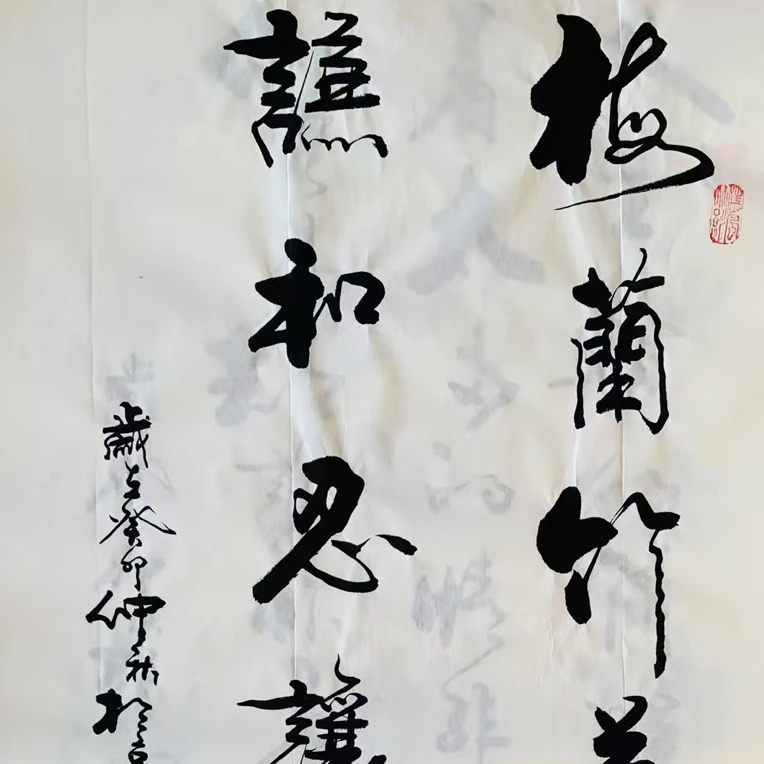 梅蘭竹菊
謙和忍讓
歲在癸卯仲秋於京